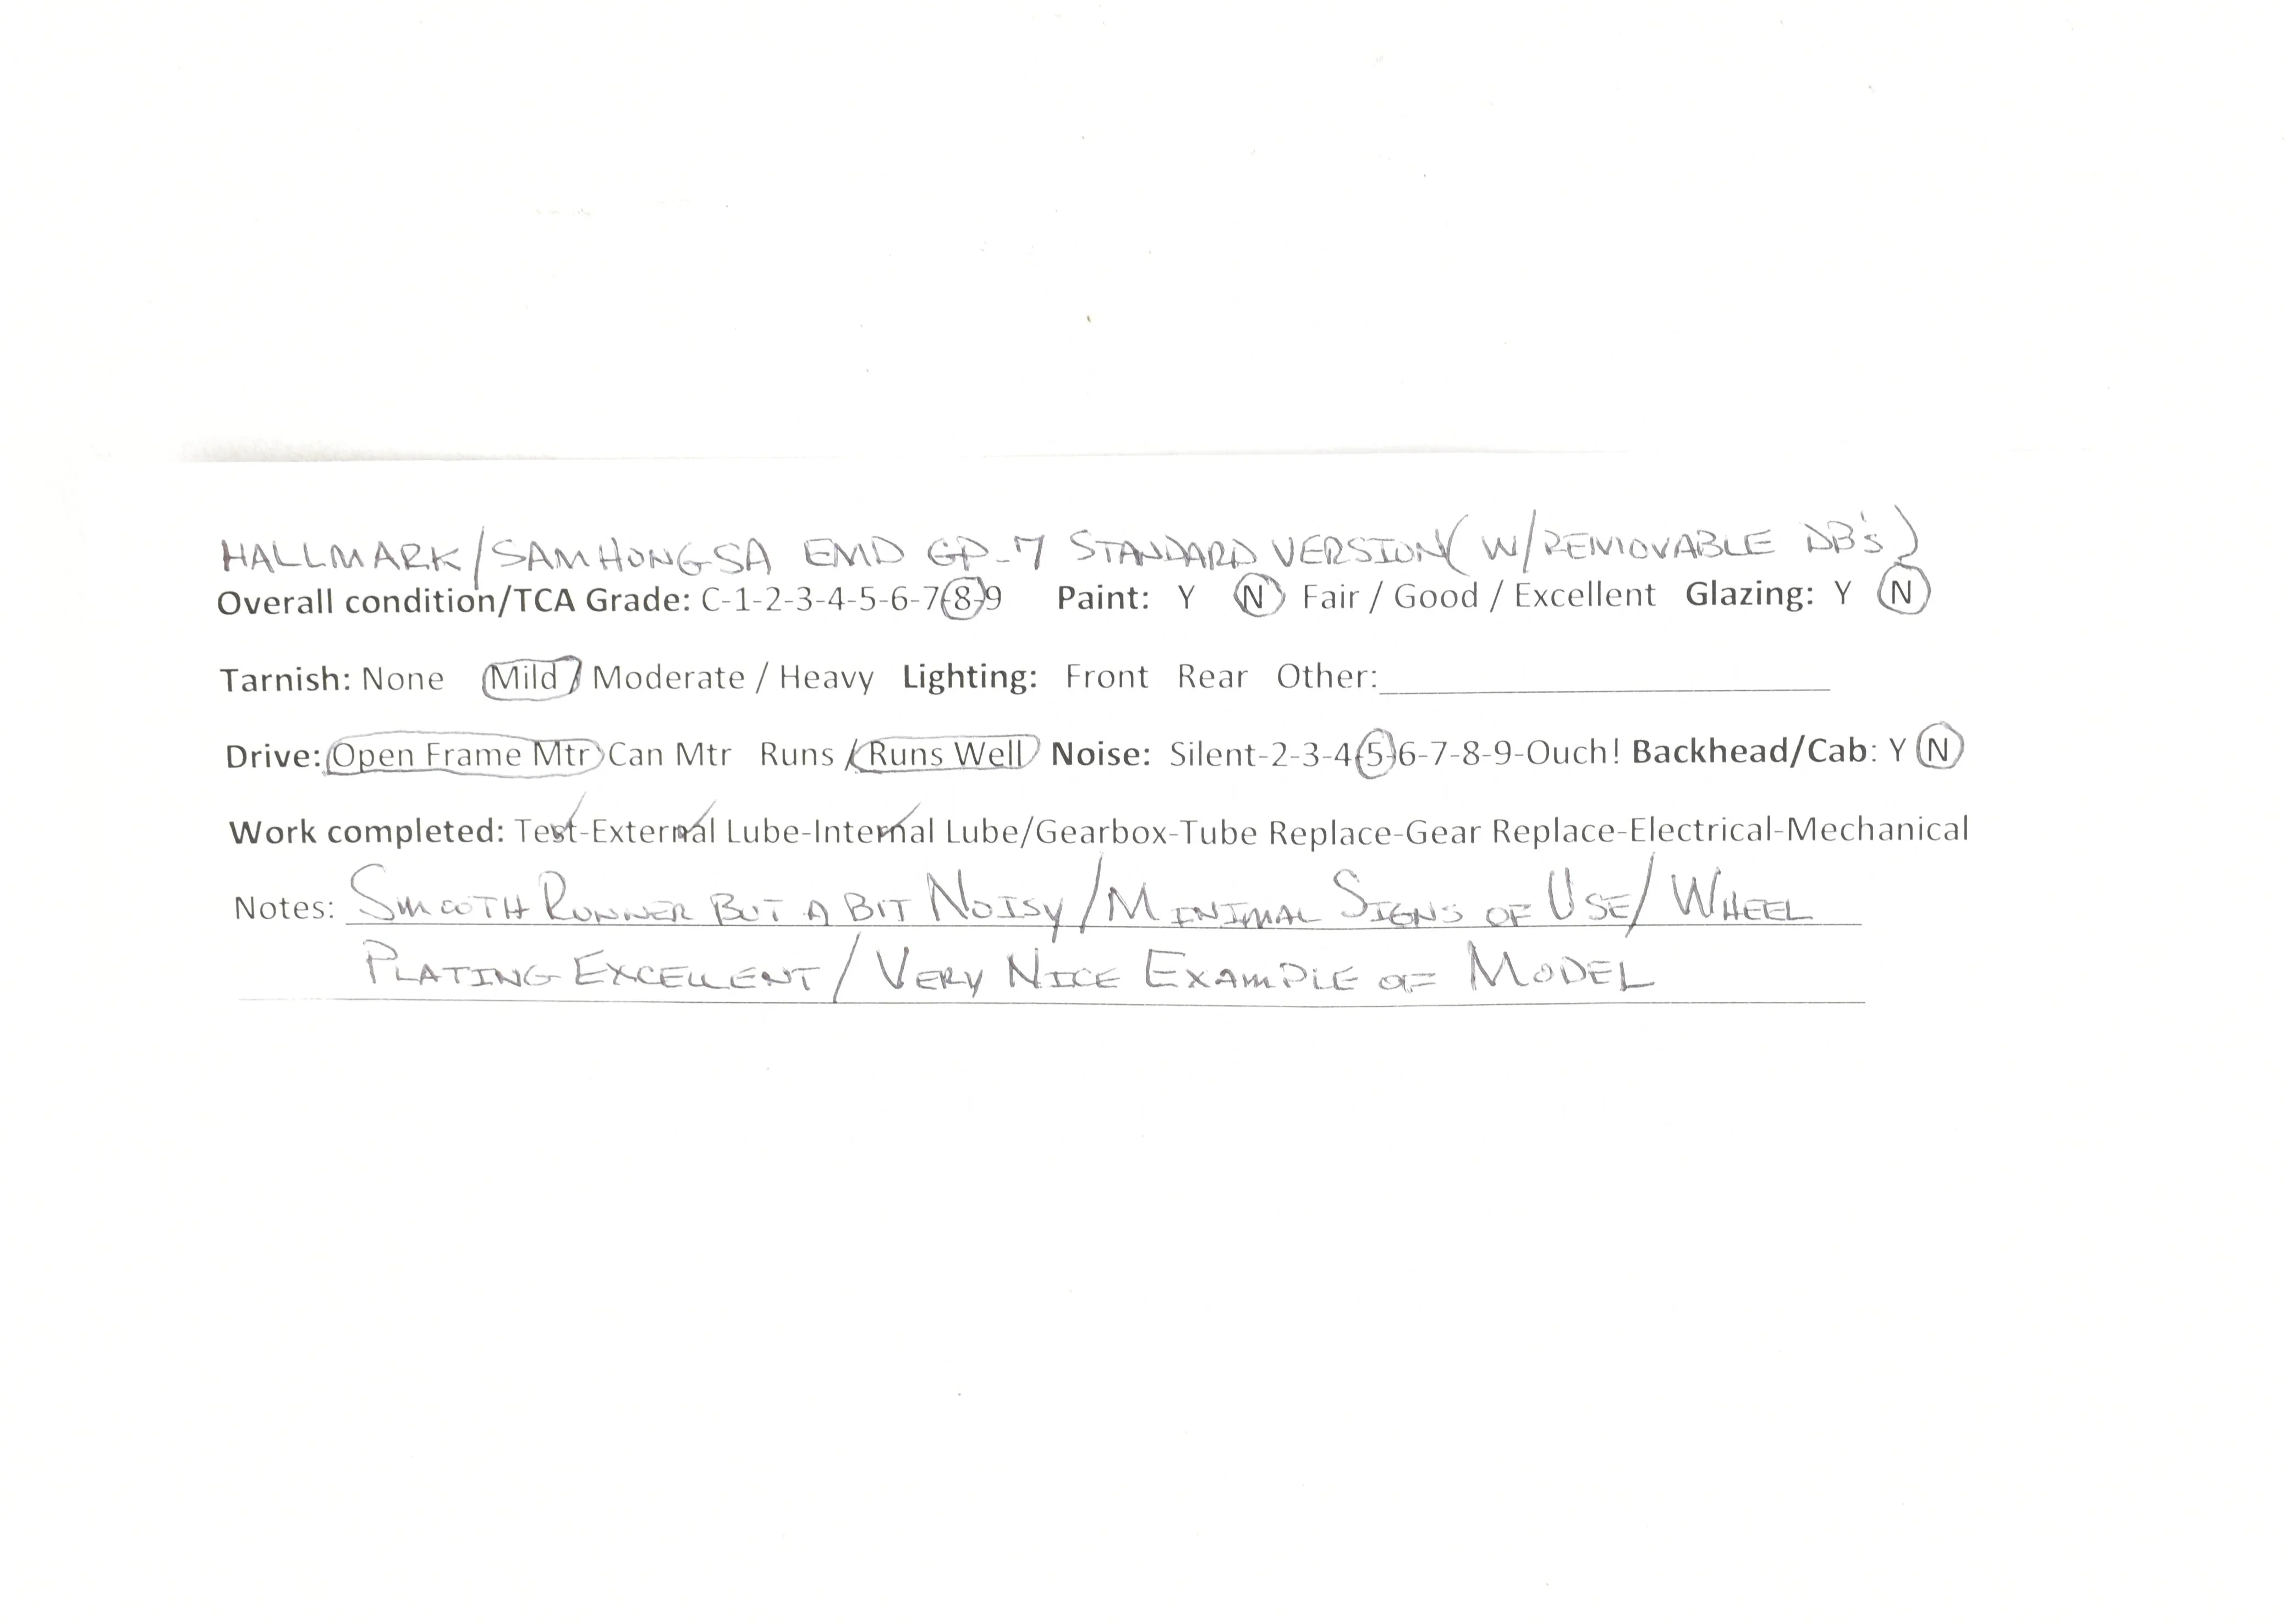 HALLMARK/SAMHONGSA EMD GP-7 STANDARD VERSION (W/REMOVABLE DB's)
Overall condition/TCA Grade: C-1-2-3-4-5-6-7-8-9 Paint: Y N Fair / Good / Excellent Glazing: Y N
Tarnish: None Mild / Moderate / Heavy Lighting: Front Rear Other:
Drive: Open Frame Mtr Can Mtr Runs / Runs Well Noise: Silent-2-3-4-5-6-7-8-9-Ouch! Backhead/Cab: Y N
Work completed: Test-External Lube-Internal Lube/Gearbox-Tube Replace-Gear Replace-Electrical-Mechanical
Notes: SMOOTH RUNNER BUT A BIT NOISY/MINIMAL SIGNS OF USE/WHEEL
PLATING EXCELLENT/VERY NICE EXAMPLE OF MODEL